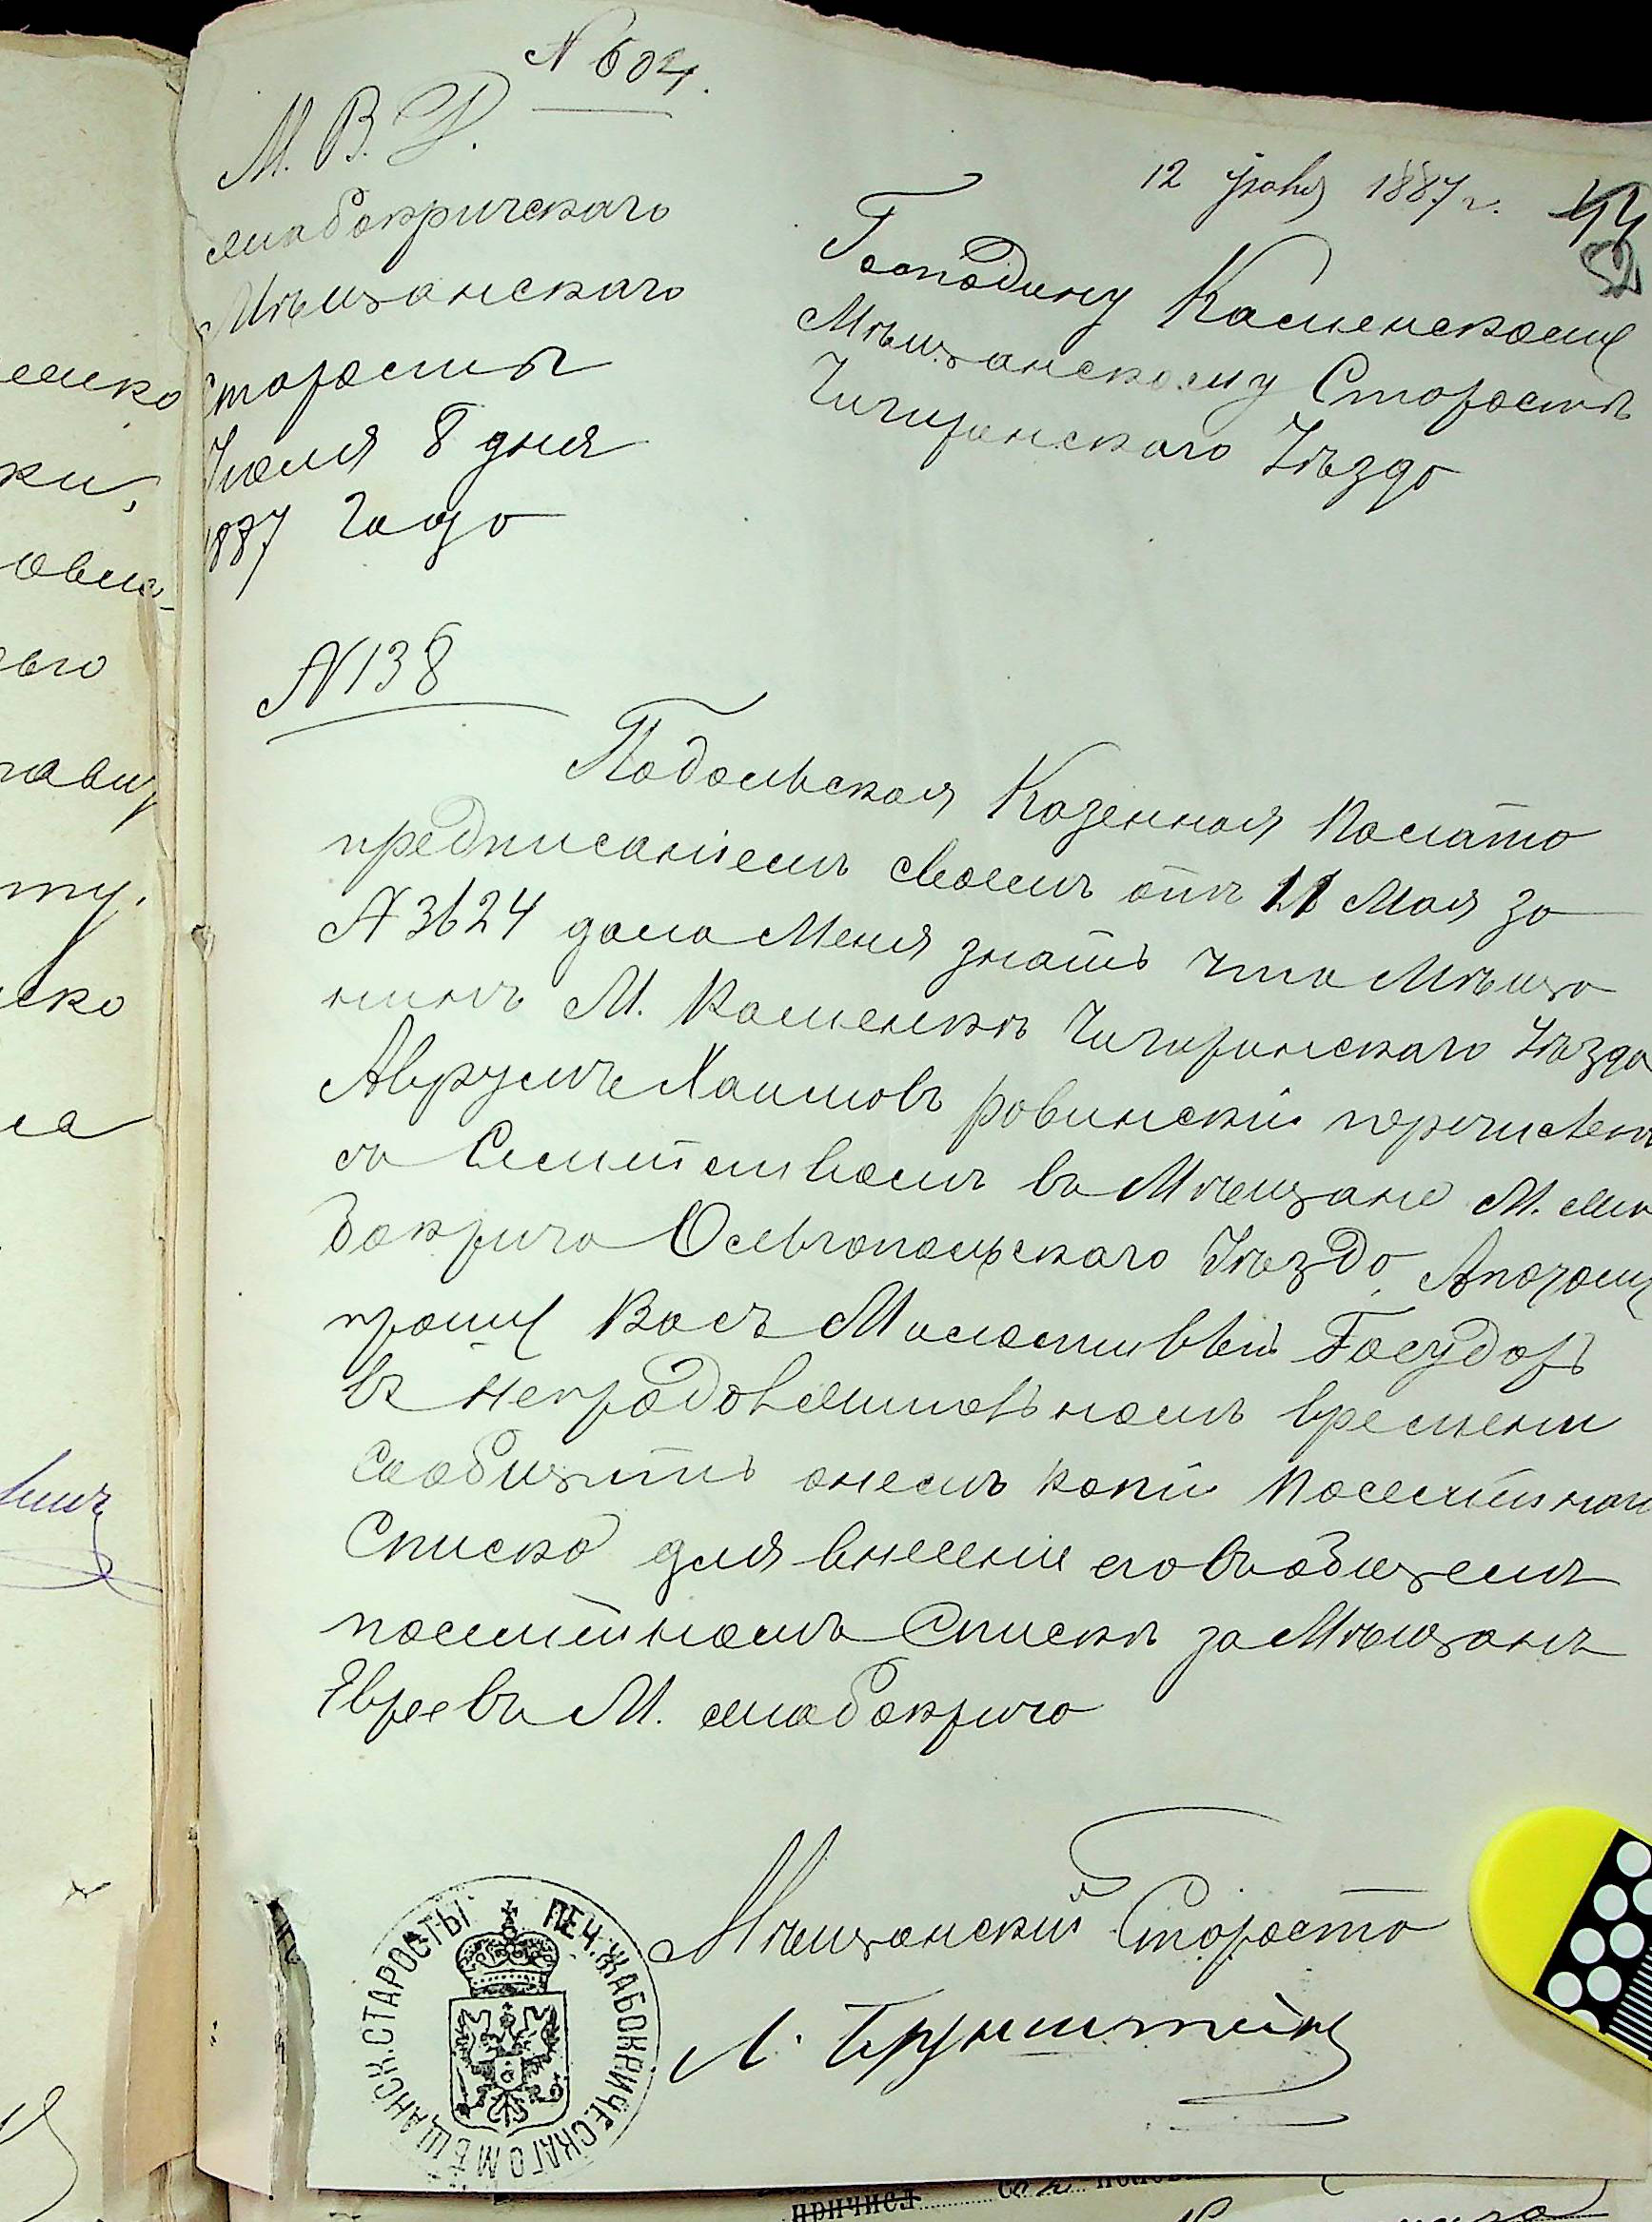 N 604.
М. В. Д.
Жабокричскаго
Мѣщанскаго
Старосты
Іюля 8 дня
1887 Года
N 138
12 1887 г.
Господину Каменскому
Мѣщанскому Старостѣ
Чигиринскаго Уѣзда
Подольская Казенная Палата
предписаніемъ своемъ отъ 11 Мая за
N 3624 дала Меня знать что Мѣща
нинъ М. Каменки Чигиринскаго Уѣзда
Аврумъ Хаимовъ Ровинскій перечислен
съ Семѣйствомъ въ Мѣщане М. Жа
бокрича Ольгопольскаго Уѣзда, Апотому
прошу Васъ Милостивый Государь
въ непродолжительномъ времени
сообщить онемъ копіи Посемейнаго
Списка для внесеніе его въ общемъ
посемѣйномъ Списки за Мѣщанъ
Евреевъ М. Жабокрича
Мѣщанскій Староста
Л. Брунштейн
ПЕЧ. ЖАБОКРИЧЕСКАГО МѢЩАНСК. СТАРОСТЫ
еско
ки,
ьго
ту.
ско
ла
причисл